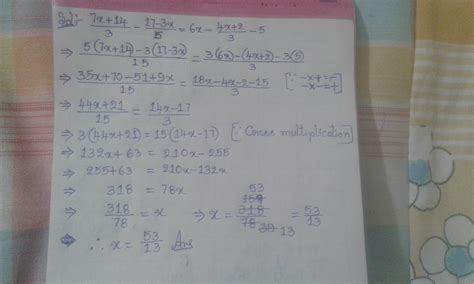 Sol:- (7x+14)/3 - (17-3x)/5 = 6x - (4x+2)/3 - 5
⇒ (5(7x+14)-3(17-3x))/15 = (3(6x)-(4x+2)-3(5))/3
⇒ (35x+70-51+9x)/15 = (18x-4x-2-15)/3 [∵ -x+=- -x-=+]
⇒ (44x+21)/15 = (14x-17)/3
⇒ 3(44x+21) = 15(14x-17) [∵ Corss multiplication]
⇒ 132x+63 = 210x-255
⇒ 255+63 = 210x-132x
⇒ 318 = 78x
⇒ 318/78 = x ⇒ x = 53 159 318/78 39 13 = 53/13
⇒ ∴ x = 53/13 Ans